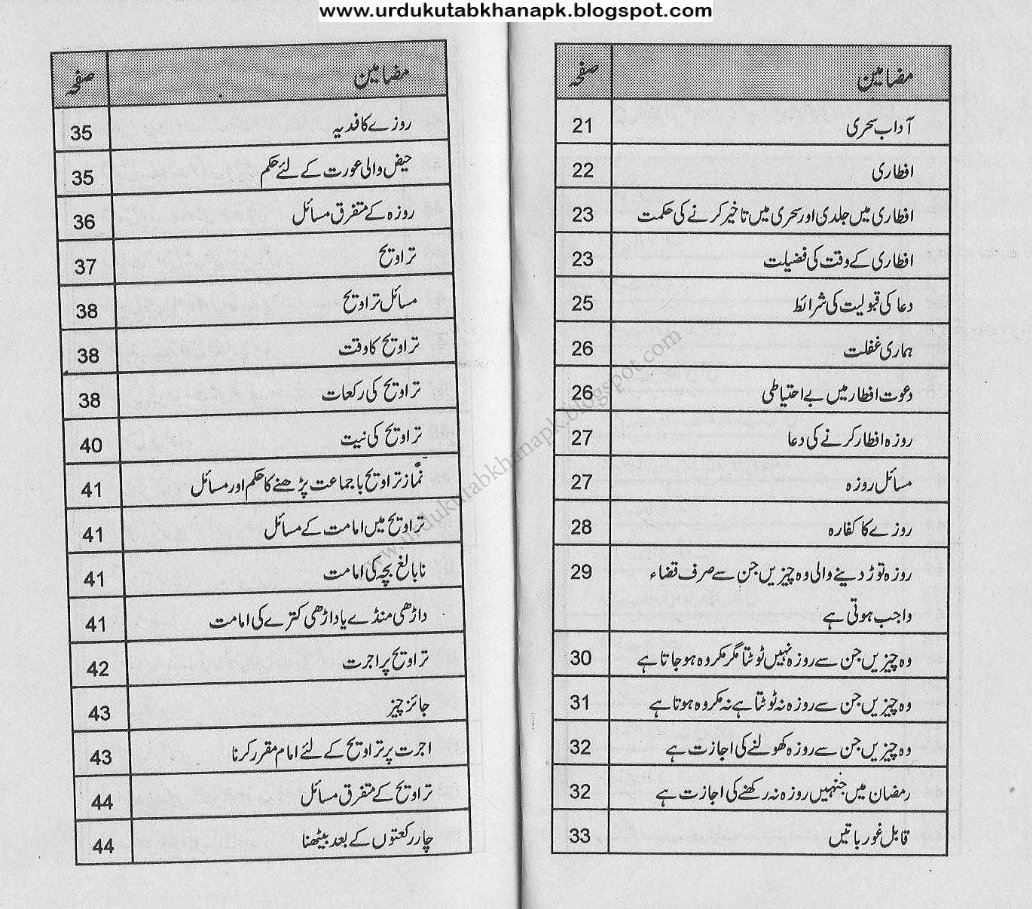 www.urdukutabkhanapk.blogspot.com
مضامین صفحہ
آداب سحری 21
افطاری 22
افطاری میں جلدی اور سحری میں تاخیر کرنے کی حکمت 23
افطاری کے وقت کی فضیلت 23
دعا کی قبولیت کی شرائط 25
ہماری غفلت 26
دعوت افطار میں بے احتیاطی 26
روزہ افطار کرنے کی دعا 27
مسائل روزہ 27
روزے کا کفارہ 28
روزہ توڑ دینے والی وہ چیزیں جن سے صرف قضاء 29
واجب ہوتی ہے
وہ چیزیں جن سے روزہ نہیں ٹوٹتا مگر مکروہ ہو جاتا ہے 30
وہ چیزیں جن سے روزہ نہ ٹوٹتا ہے نہ مکروہ ہوتا ہے 31
وہ چیزیں جن سے روزہ کھولنے کی اجازت ہے 32
رمضان میں جنہیں روزہ نہ رکھنے کی اجازت ہے 32
قابل غور باتیں 33
مضامین صفحہ
روزے کا فدیہ 35
حیض والی عورت کے لئے حکم 35
روزہ کے متفرق مسائل 36
تراویح 37
مسائل تراویح 38
تراویح کا وقت 38
تراویح کی رکعات 38
تراویح کی نیت 40
نماز تراویح با جماعت پڑھنے کا حکم اور مسائل 41
تراویح میں امامت کے مسائل 41
نابالغ بچہ کی امامت 41
داڑھی منڈے یا داڑھی کترے کی امامت 41
تراویح پر اجرت 42
جائز چیز 43
اجرت پر تراویح کے لئے امام مقرر کرنا 43
تراویح کے متفرق مسائل 44
چار رکعتوں کے بعد بیٹھنا 44
www.urdukutabkhanapk.blogspot.com